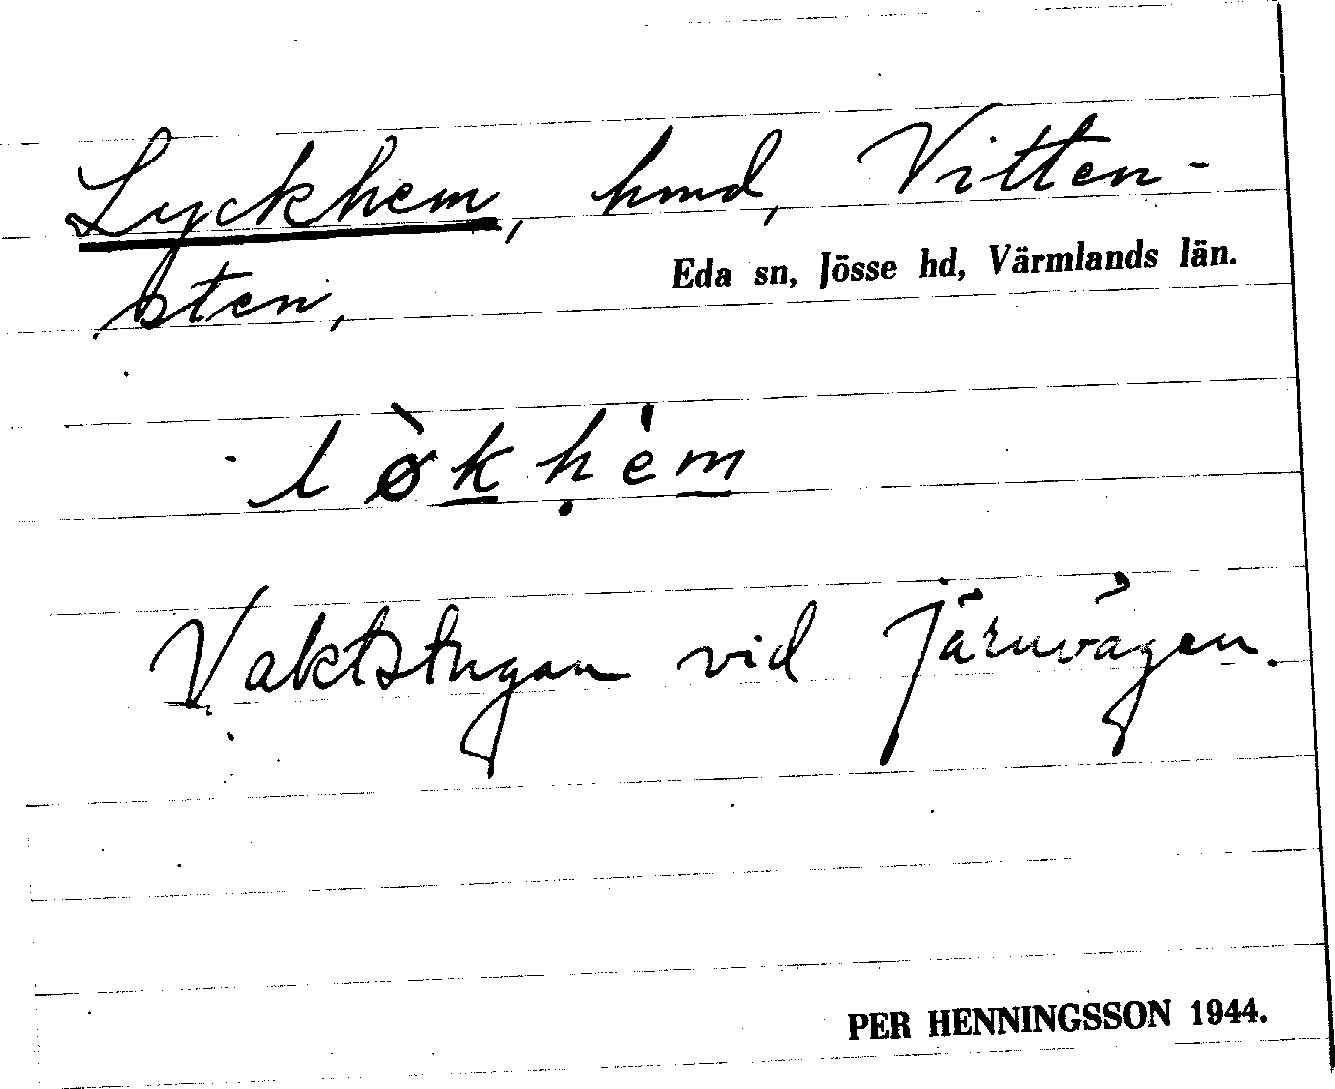 Lyckhem, hmd, Vitten-
sten,
Eda sn, Jösse hd, Värmlands län.
lø̀kḥém
Vaktstugan vid järnvägen.
PER HENNINGSSON 1944.